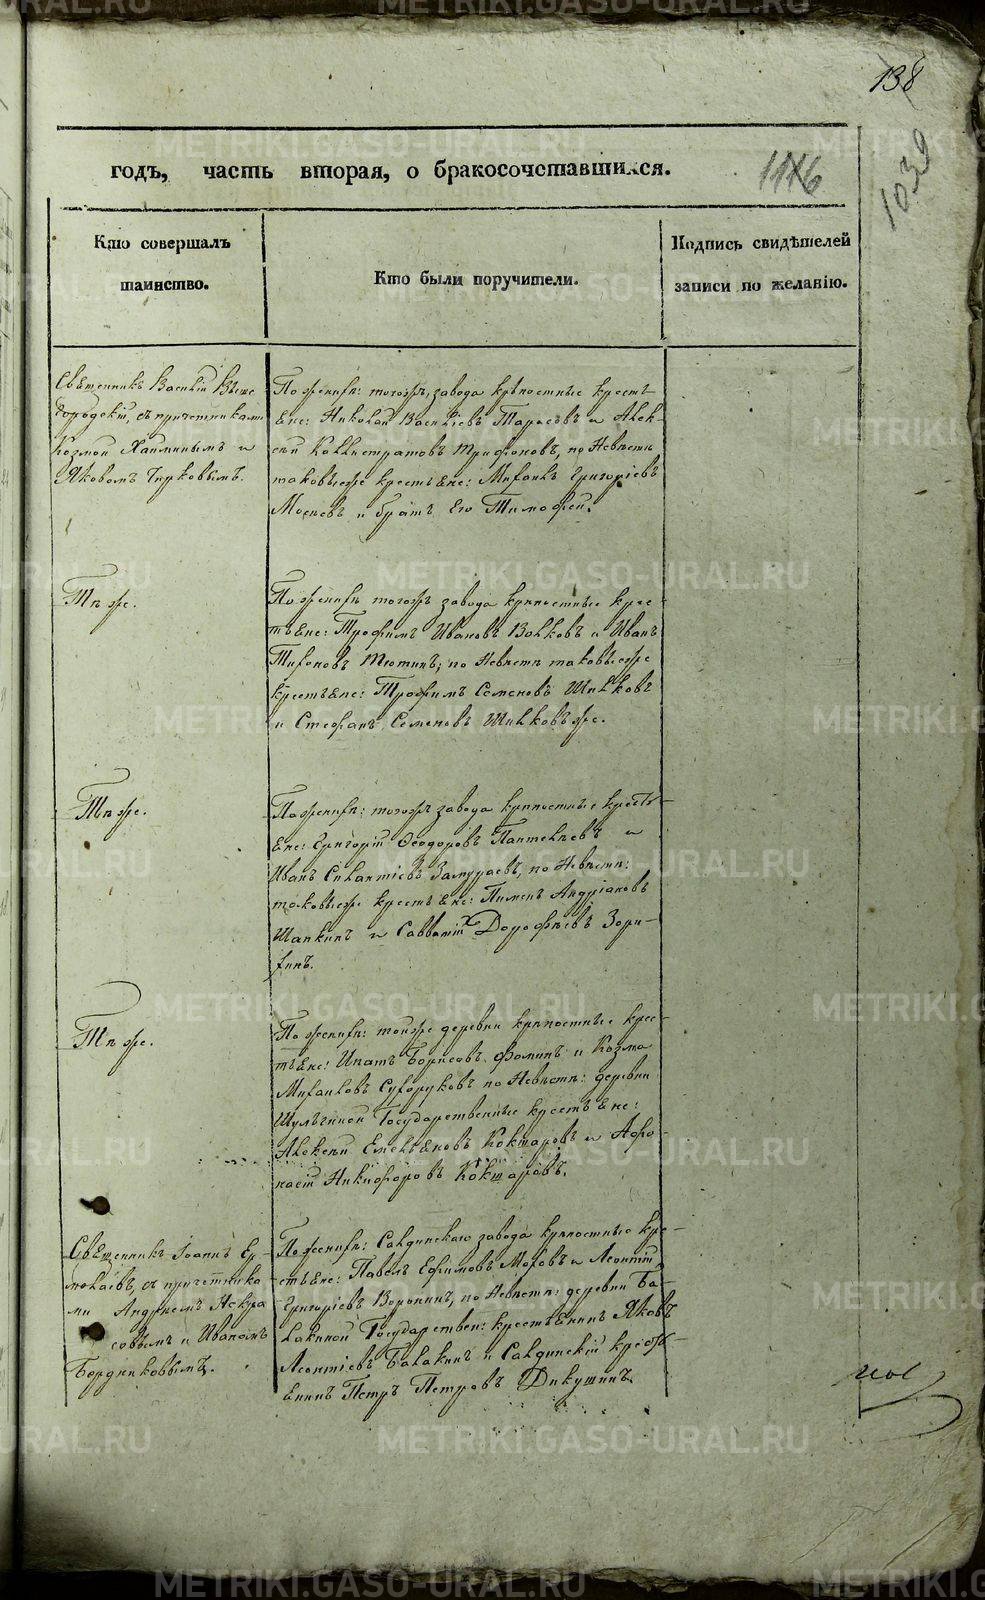 138
1039
годъ, часть вторая, о бракосочетавшихся.
1146
Кто совершалъ
таинство.
Кто были поручители.
Подпись свидѣтелей
записи по желанію.
Священникъ Василій Выше
городскій, съ причетниками
Козмой Хаминымъ и
Яковомъ Чирковымъ.
По женихѣ: тогожъ завода крѣпостные кресть
яне: Николай Васильевъ Тарасовъ и Алек-
сѣй Каллистратовъ Трифоновъ, по невѣстѣ
таковыеже крестьяне: Михаилъ Григорьевъ
Мосѣевъ и братъ его Тимофей.
Тѣже.
По женихѣ тогожъ завода крѣпостные крес-
тьяне: Трофимъ Ивановъ Волковъ и Иванъ
Тихоновъ Тютинъ; по невѣстѣ таковыеже
крестьяне: Трофимъ Семеновъ Шилковъ
и Стефанъ Семеновъ Шилковъже.
Тѣже.
По женихѣ: тогожъ завода крѣпостные кресть-
яне: Григорій Ѳеодоровъ Пантелѣевъ и
Иванъ Силантіевъ Замураевъ, по невѣстѣ:
таковыеже крестьяне: Пименъ Андріановъ
Шапкинъ и Савватій Дорофѣевъ Зори-
хинъ.
Тѣже.
По женихѣ: тойже деревни крѣпостные крес-
тьяне: Ипатъ Борисовъ Фоминъ и Козма
Михайловъ Сухоруковъ по невѣстѣ: деревни
Шулѣгиной Государственные крестьяне:
Алексѣй Емельяновъ Кокшаровъ и Афо-
насій Никифоровъ Кокшаровъ.
Священникъ Іоаннъ Ер-
молаевъ, съ причетника
ми Андреемъ Некра
совымъ и Иваномъ
Бердниковымъ.
По женихѣ: Салдинскаго завода крѣпостные кре-
стьяне: Павелъ Ефимовъ Моховъ и Леонтій
Григорьевъ Воронинъ, по невѣстѣ: деревни Ба-
лакиной Государствен: крестьянинъ Яковъ
Леонтіевъ Балакинъ и Салдинскій кресть-
янинъ Петръ Петровъ Дикушинъ.
METRIKI.GASO-URAL.RU